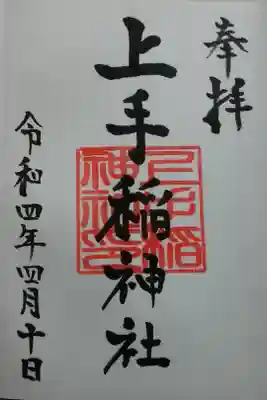 奉拝
上手稲神社
令和四年四月十日
上手稲神社印